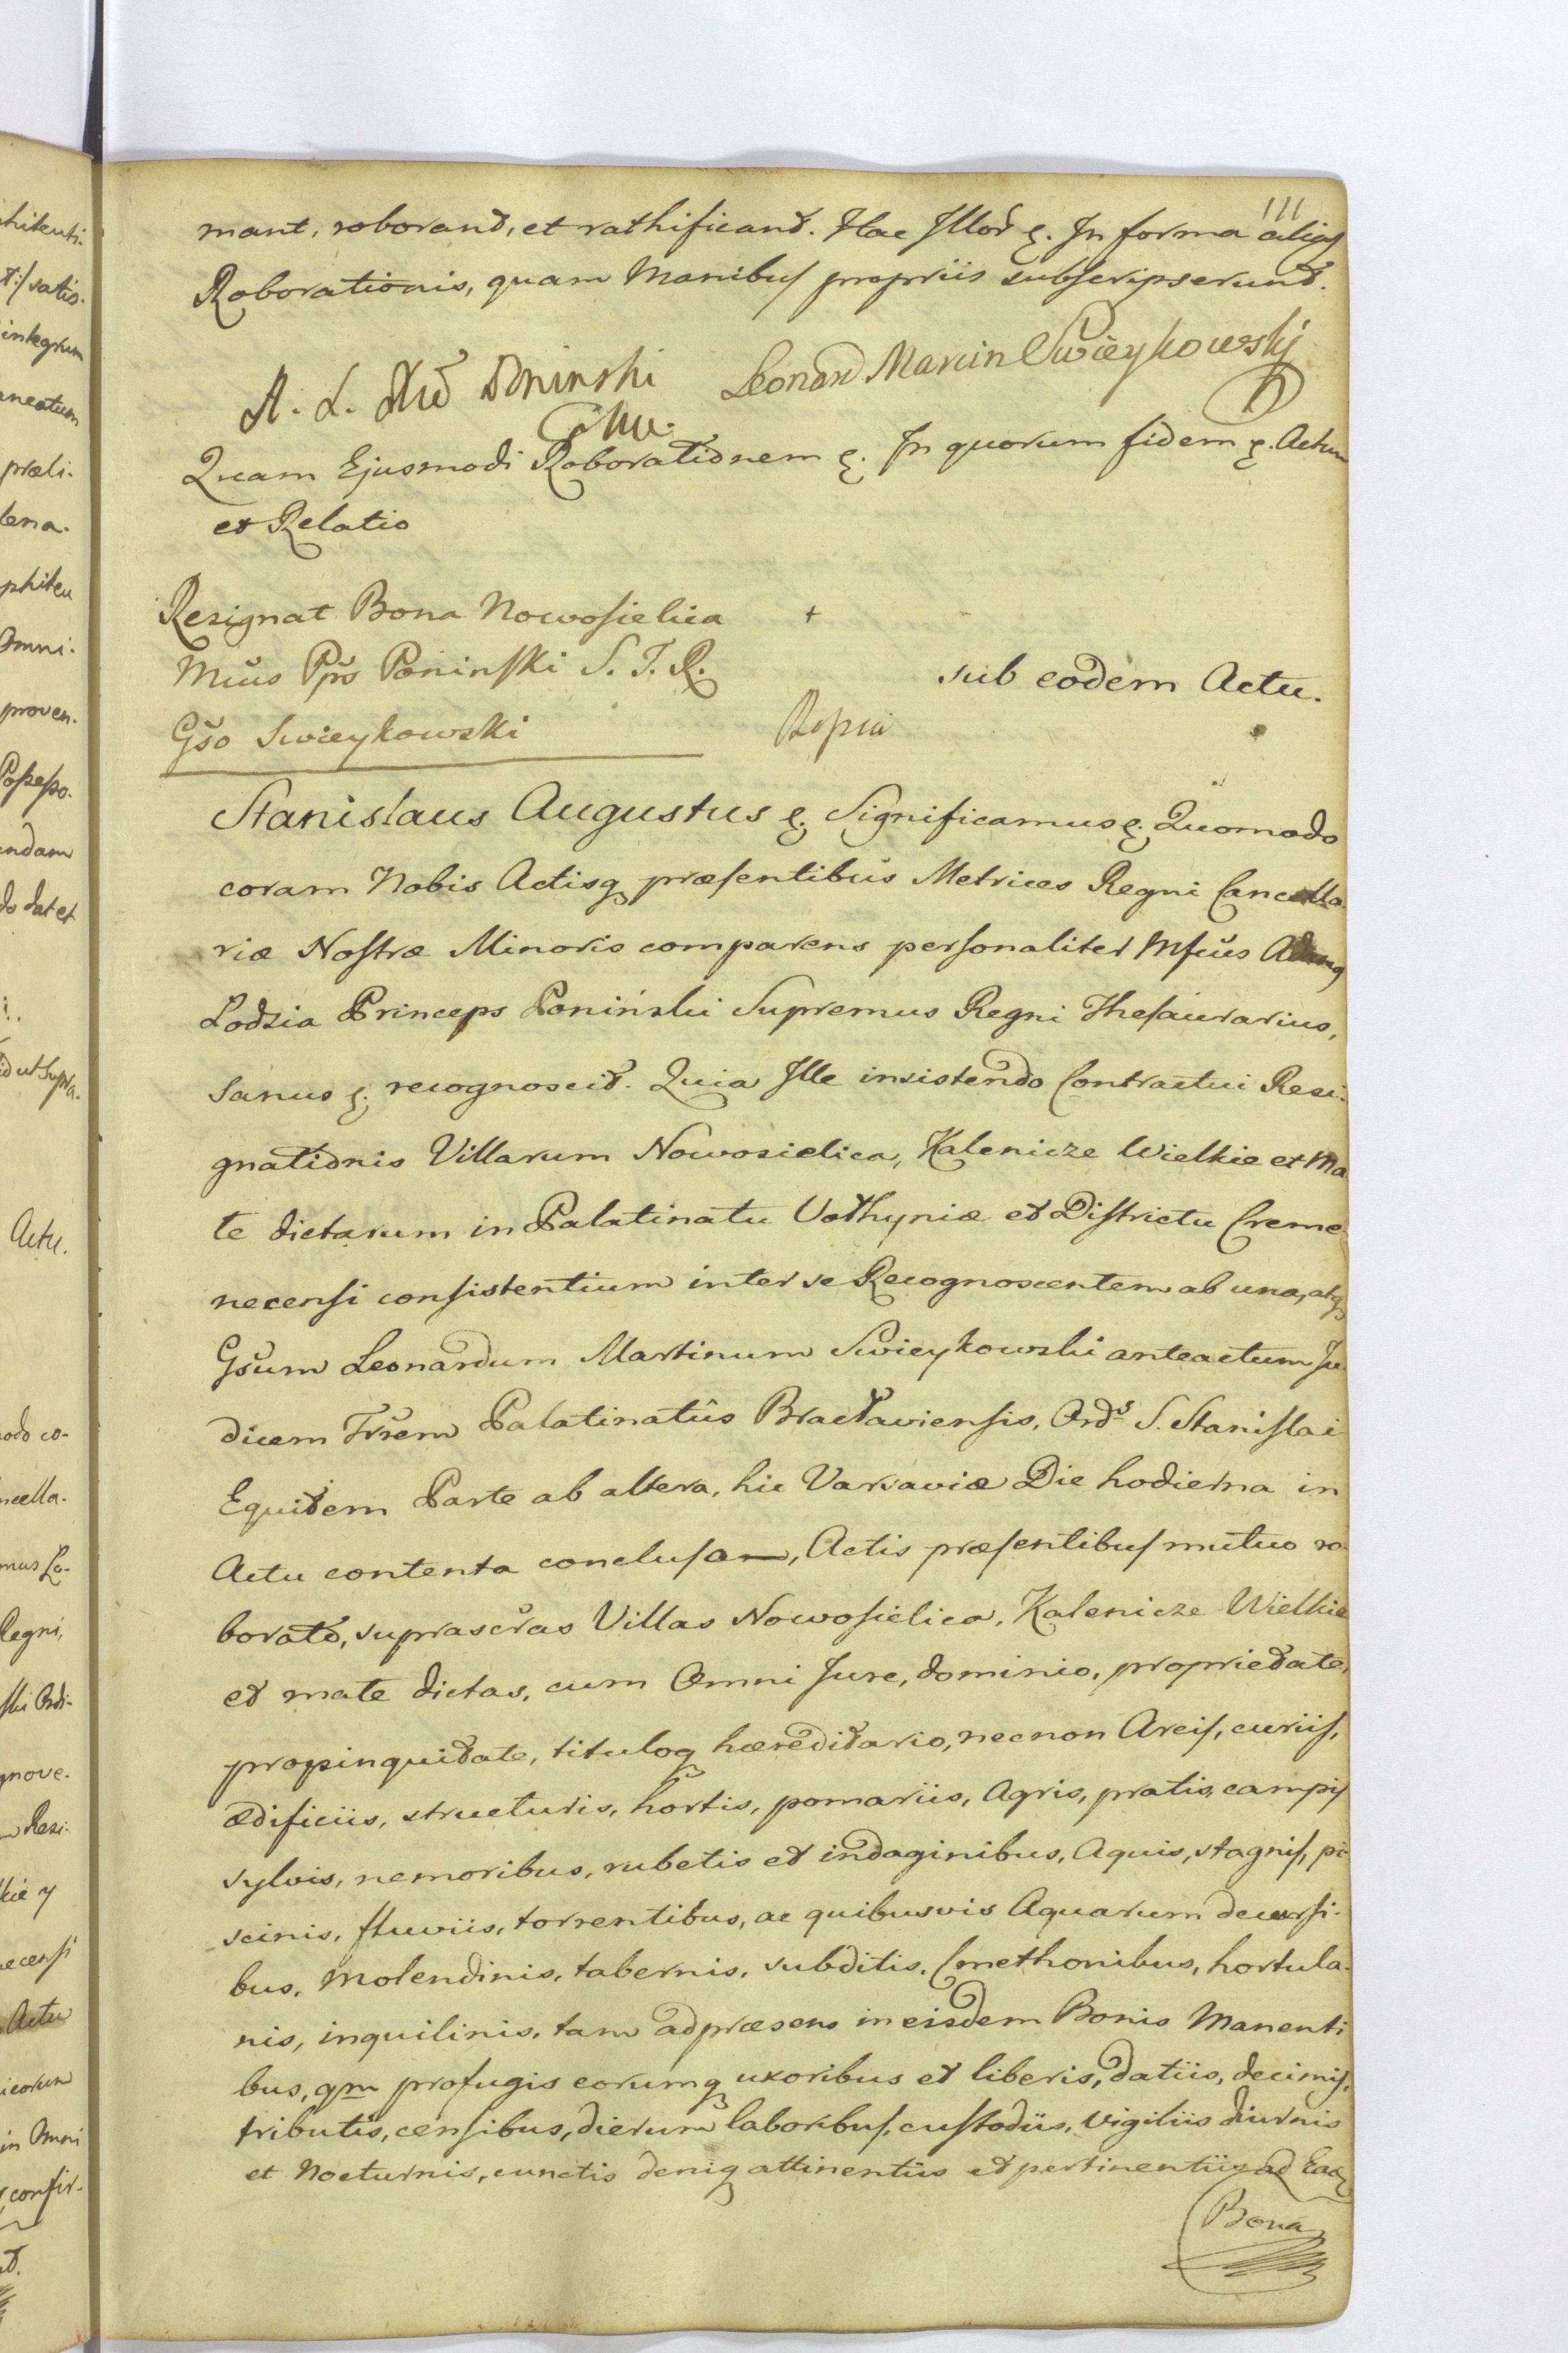 111
mant, roborant, et rathificant. Hac Illor &. In forma aliqs
Roborationis, quam Manibus propriis subscripserunt.
A. L. Poninski Leonard Marcin Swieykowski
Quam Ejusmodi Roborationem &. In quorum fidem &. Actum
et Relatio
Resignat Bona Nowosielica +
Mcus Pps Poninski S. T. R.
sub eodem Actu.
Gso Swieykowski
Stanislaus Augustus &. Significamus &. Quomodo
coram Nobis Actisq præsentibus Metrices Regni Cancella
riæ Nostræ Minoris comparens personaliter Mfcus Adamq
Lodzia Princeps Poniński Supremus Regni Thesaurarius,
Sanus &. recognoscit. Quia Ille insistendo Contractui Resi-
gnationis Villarum Nowosielica, Kalenicze Wielkie et Ma
łe dictarum in Palatinatu Volhyniæ et Districtu Creme
necensi consistentium inter se Recognoscentem ab una, atq
Gsum Leonardum Martinum Swieykowski anteactum Ju
dicem Trsem Palatinatûs Bracłaviensis, Ords S. Stanislai
Equitem Parte ab altera, hic Varsaviæ Die hodierna in
Actu contenta conclusa, Actis præsentibus mutuo ro
borato, suprascras Villas Nowosielica, Kalenicze Wielkie
et małe dictas, cum Omni Jure, dominio, proprietate,
propinquitate, tituloq hæreditario, necnon Arcis, curiis,
ædificiis, structuris, hortis, pomariis, Agris, pratis, campis
sylvis, nemoribus, rubetis et indaginibus, Aquis, stagnis, pi
scinis, fluviis, torrentibus, ac quibusvis Aquarum decursi-
bus, Molendinis, tabernis, subditis, Cmethonibus, hortula-
nis, inquilinis, tam ad præsens in eisdem Bonis Manenti
bus, qm profugis eorumq uxoribus et liberis, datiis, decimis,
tributis, censibus, dierum laboribus, custodiis, vigiliis diurnis
et Nocturnis, cunctis deniq attinentiis et pertinentiis ad Eaq
Bona